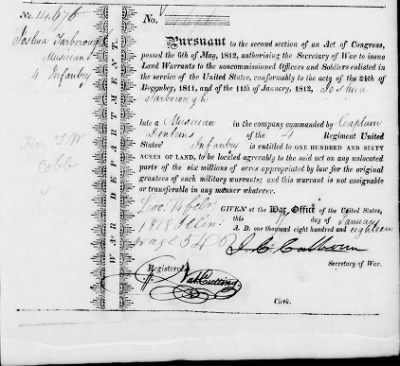 No. 14676
Joshua Yarborough
Musician
4 Infantry
Hon T. W.
Cobb
WAR DEPARTMENT.
No.
Pursuant to the second section of an Act of Congress,
passed the 6th of May, 1812, authorising the Secretary of War to issue
Land Warrants to the noncommissioned Officers and Soldiers enlisted in
the service of the United States, conformably to the acts of the 24th of
December, 1811, and of the 11th of January, 1812, Joshua
Yarborough
late a Musician in the company commanded by Captain
of the 4 Regiment United
States' Infantry is entitled to ONE HUNDRED AND SIXTY
ACRES OF LAND, to be located agreeably to the said act on any unlocated
parts of the six millions of acres appropriated by law for the original
grantees of such military warrants; and this warrant is not assignable
or transferable in any manner whatever.
GIVEN at the War Office of the United States,
this day of January
A. D. one thousand eight hundred and eighteen
Loc. 14 Febr
1818 Illin.
page 340
J. C. Calhoun
Secretary of War.
Registered
Nat Cutting
Clerk.